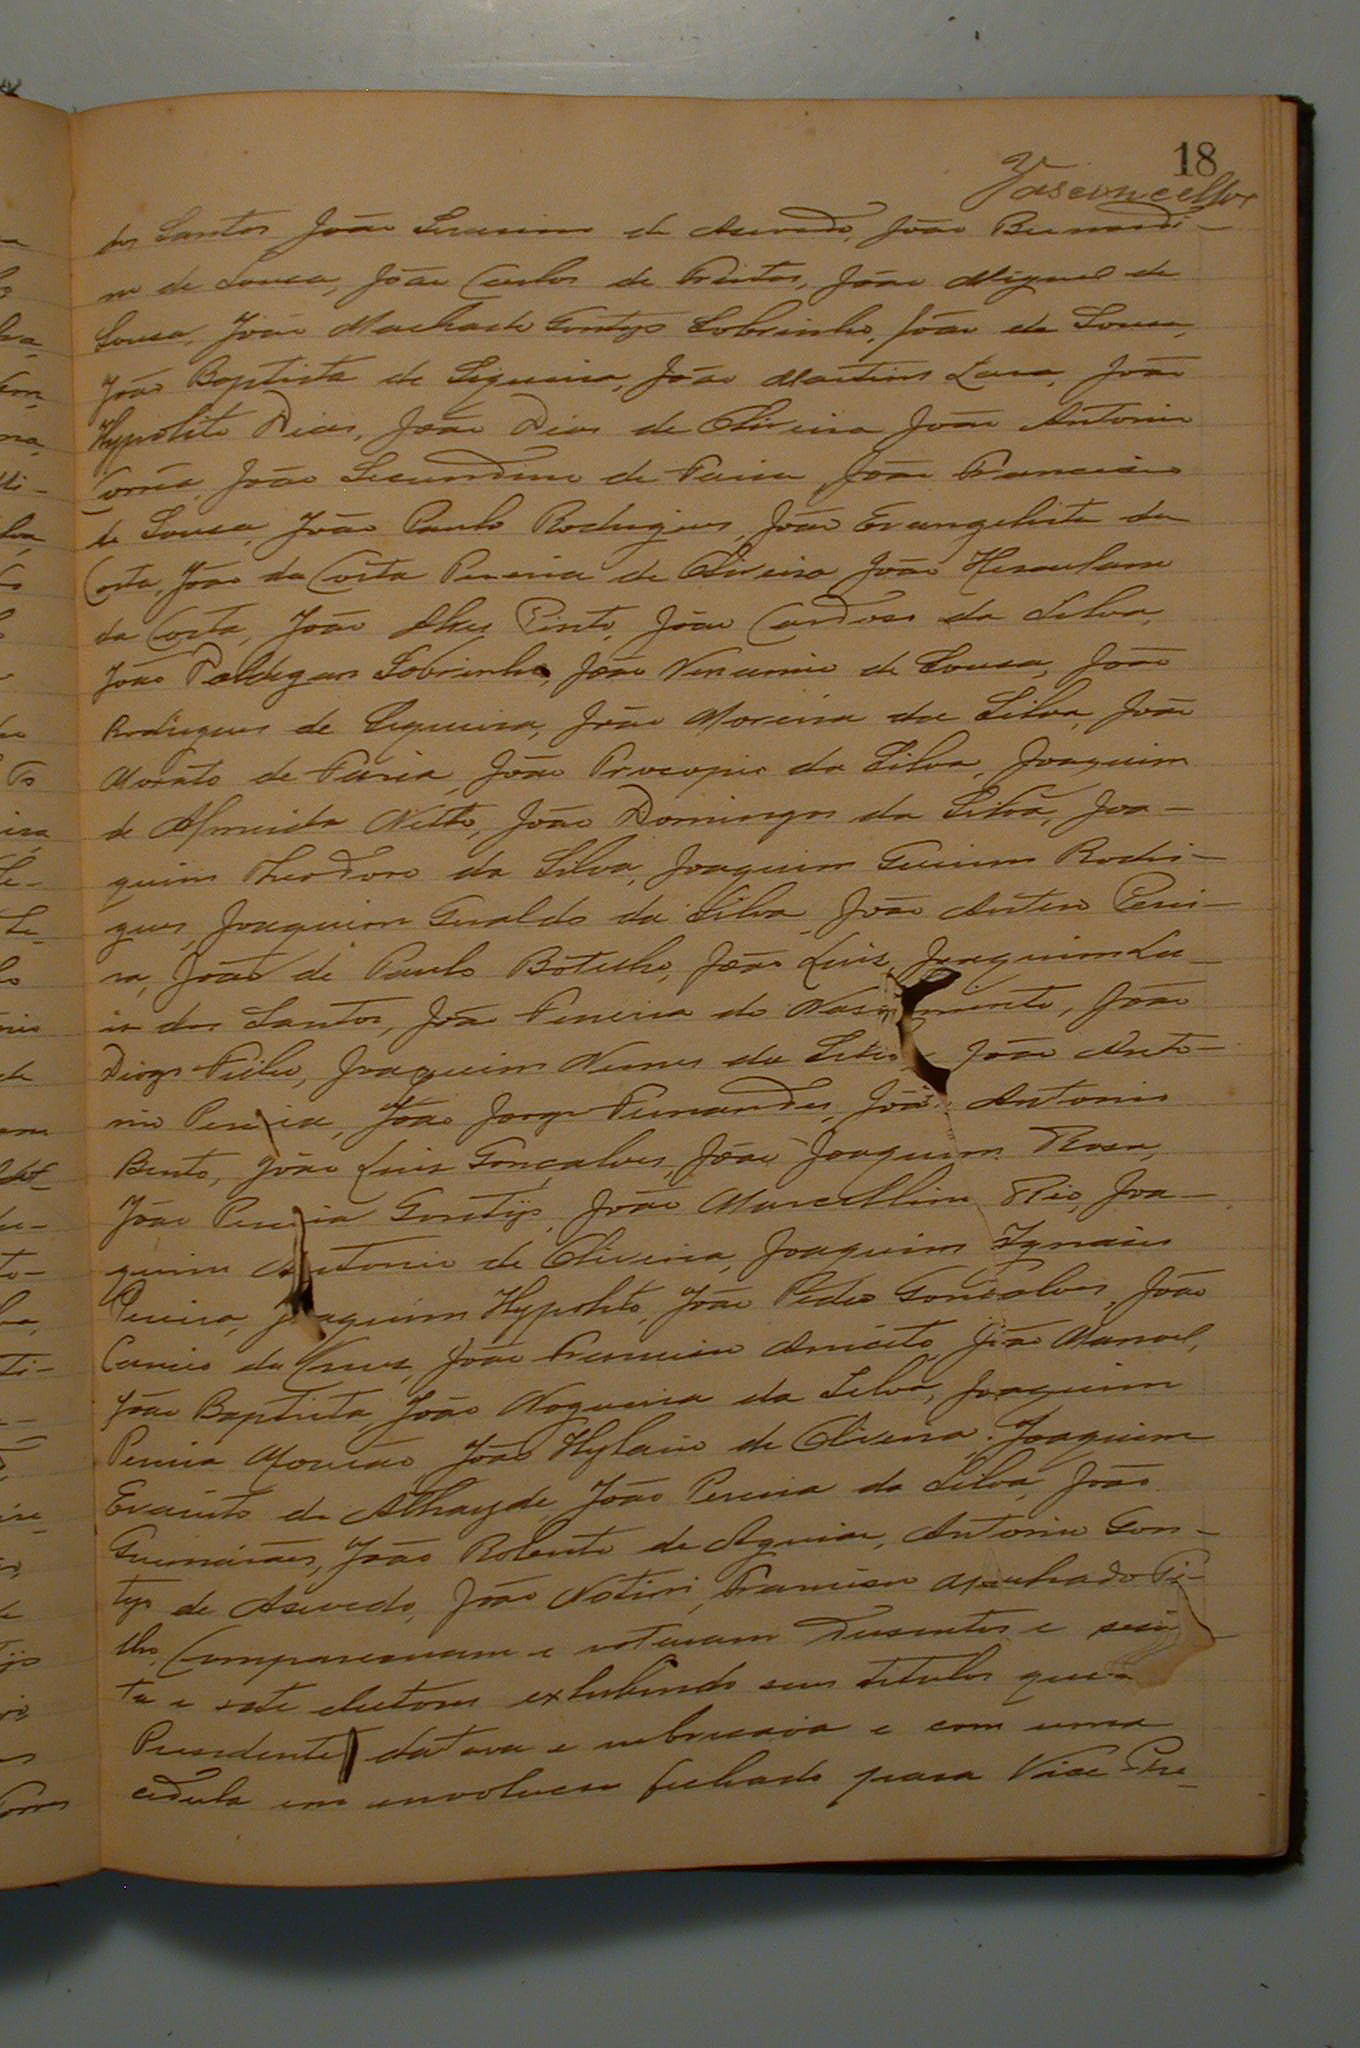 18
Vasconcellos
dos Santos João Severino de Azevedo, João Bernardi-
no de Sousa, João Carlos de Freitas, João Miguel de
Sousa, João Machado Gontijo Sobrinho, João de Sousa,
João Baptista de Siqueira, João Martins Lara, João
Hypolito Dias, João Dias de Oliveira João Antonio
Corrêa, João Secundino de Faria, João Francisco
de Sousa, João Paulo Rodrigues, João Evangelista da
Costa, João da Costa Pereira de Oliveira João Herculano
da Costa, João Alves Pinto, João Cardoso da Silva,
João Sobrinho, João Venancio de Sousa, João
Rodrigues de Siqueira, João Moreira da Silva, João
Morato de Faria, João Procopio da Silva, Joaquim
de Almeida Netto, João Domingos da Silva, Joa-
quim Theodoro da Silva, Joaquim Rodri-
gues, Joaquim Geraldo da Silva, João Antero Perei-
ra, João de Paulo Botelho, João Luis, Joaquim Lu-
is dos Santos, João Ferreira do Nascimento, João
Diogo Filho, Joaquim Nunes da Silva João Anto-
nio Pereira, João Jorge Fernandes, João Antonio
Bento, João Luis Gonçalves, João Joaquim Rosa,
João Pereira Gontijo, João Marcellino Rio, Joa-
quim Antonio de Oliveira, Joaquim Ignacio
Pereira, Joaquim Hypolito, João Pedro Gonçalves, João
da Cruz, João Francisco Aniceto, João Manoel,
João Baptista, João Nogueira da Silva, Joaquim
Pereira Mourão João Hylario de Oliveira. Joaquim
Evaristo de Athayde, João Pereira da Silva, João
Guimarães, João Roberto de Aguiar, Antonio Gon-
tijo de Azevedo, João Notini, Francisco Machado Fi-
lho, Compareceram e votaram Dusentos e sessen-
ta e sete eleitores exhibindo seus titulos que o
Presidente datava e rubricava e com uma
cedula em envolucro fechado para Vice-Pre-